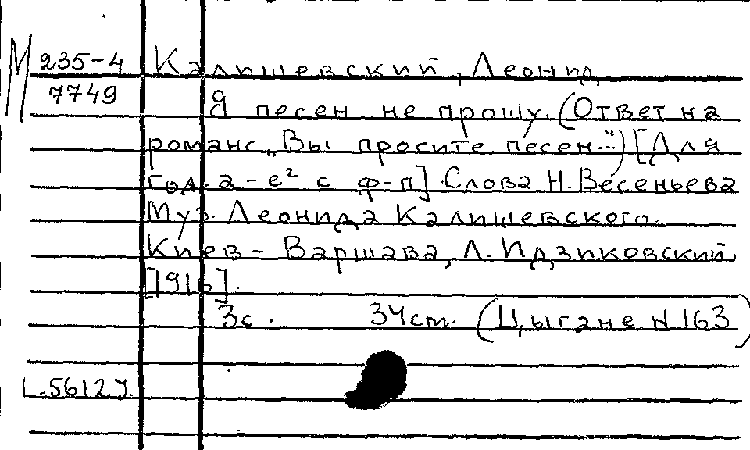 М 235-4 Калишевский, Леонид
7749 Я песен не прошу. (Ответ на
романс „Вы просите песен...") [Для
гол. a-e² с ф-п]. Слова Н. Весеньева
Муз. Леонида Калишевского.
Киев - Варшава, Л. Идзиковский
[1916].
3с. 34 см. (Цыгане N 163)
L.5612 J.